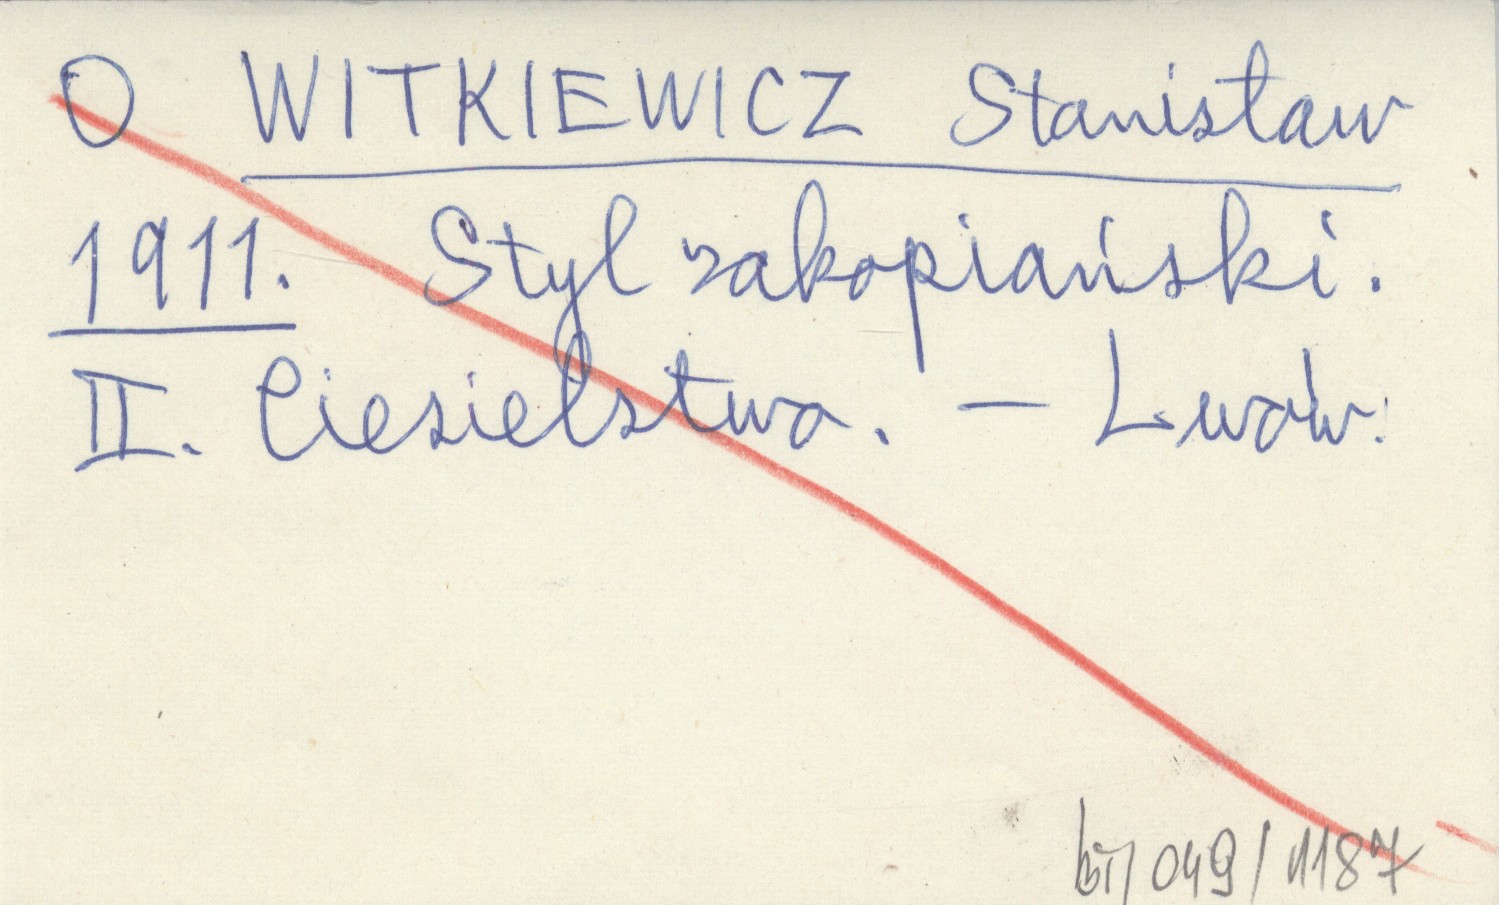 O WITKIEWICZ Stanisław
1911. Styl zakopiański.
II. Ciesielstwo. — Lwów.
049/1187